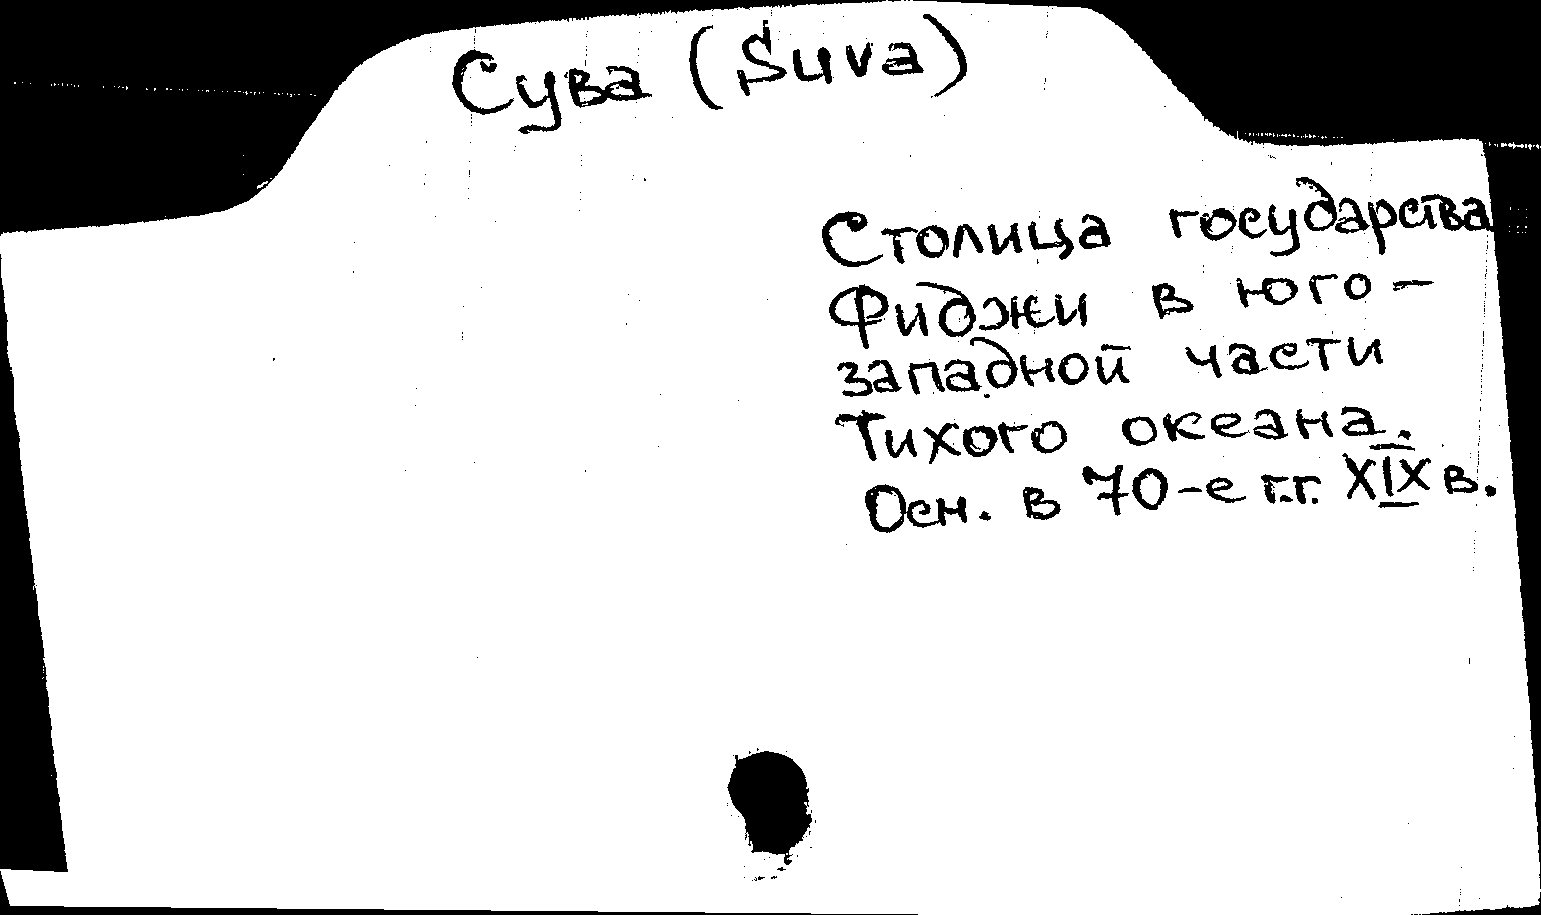 Сува (Suva)
Столица государства
Фиджи в юго-
западной части
Тихого океана.
Осн. в 70-е г.г. XIX в.